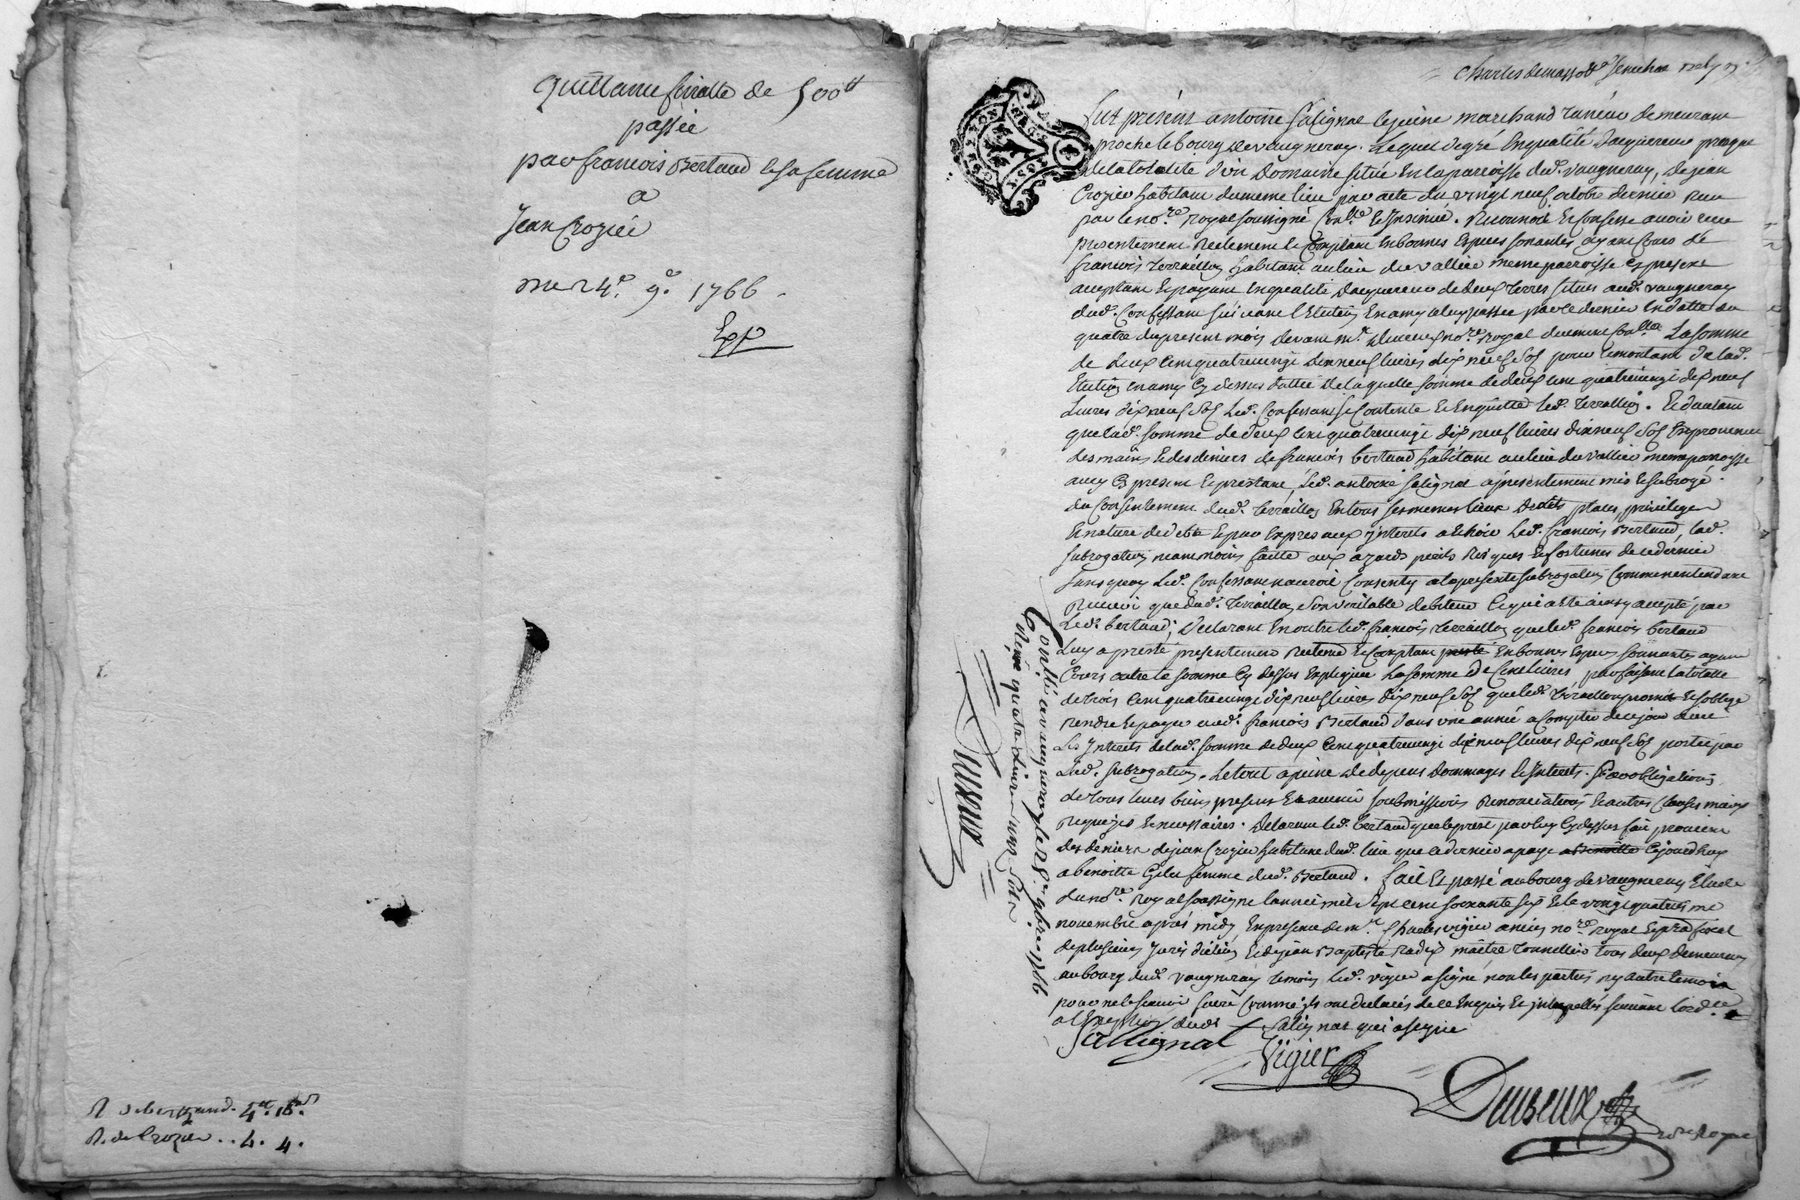 quittance finalle de 500tt
passée
par francois Bertaud et sa femme
a
Jean Crozier
du 24e. 9e. 1766
Exp
R de bertaud. 4tt. 18s.
R. de Crozier .. 4. 4.
Charles demasso
fut présent antoine Salignat le jeune marchand taneur demeurant
proche le bourg de vaugneray. Lequel de gré en qualité d'acquereur presque
de la totalité d'un Domaine situé en la parroisse dud. vaugneray, de jean
Crozier habitant du meme lieu par acte du vingt neuf octobre dernier reçu
par le no.re royal soussigné Con.llé et insinué. Reconnoit et confesse avoir reçu
presentement reelement et comptant en bonnes especes sonnantes ayant cours de
francois terraillon habitant au lieu du vallier meme parroisse cy present
acceptant et payant en qualité d'acquereur de deux terres situés aud. vaugneray
dud. Confessant suivant l'Election en amy a luy passée par ce dernier en datte du
quatre du present mois devant m.e no.re royal La somme
de deux cent quatrevingt dix neuf livres dix neuf sols pour le montant de lad.
Election en amy cy dessus dattée de laquelle somme de deux cent quatrevingt dix neuf
Livres dix neuf sols led. Confessant se contente et en quitte led. terraillon. Et d'autant
que lad. somme de deux cent quatrevingt dix neuf livres dix neuf sols en provenue
des mains et des deniers de francois bertaud habitant au lieu du vallier meme parroisse
aussy cy present et prestant, led. antoine salignat a presentement mis et subrogé
du consentement dud. terraillon en tous ses memes lieux droits places, privileges
et nature de dette et par exprès aux interets a echoir led. francois Bertaud, lad.
subrogation neanmoins faitte aux azards perils risques et fortunes de ce dernier
sans quoy led. Confessant n'auroit consenty a la presente subrogation comme n'entendant
recevoir que dud. terraillon son veritable debiteur ce qui a été ainsy accepté par
led. bertaud; Declarant en outre led. francois terraillon que led. francois bertaud
luy a presté presentement reelement et comptant en bonnes especes sonnantes ayant
cours outre la somme cy dessus expliquée la somme de cent livres, faisant la totalle
de trois cent quatrevingt dix neuf livres dix neuf sols que led. terraillon promet et s'oblige
rendre et payer aud. francois Bertaud dans une année a compter de ce jour avec
les interets de lad. somme de deux cent quatrevingt dix neuf livres dix neuf sols portée par
lad. subrogation. Le tout a peine de depens dommages et interets. par obligations
de tous leurs biens presents et avenir soubmissions renonciations et autres clauses
requises et necessaires. Declarant led. bertaud que le prest par luy cy dessus fait provient
des deniers de jean Crozier habitant dud. lieu que ce dernier a payé cejourdhuy
a benoitte femme dud. Bertaud. fait et passé au bourg de vaugneray Etude
du no.re royal soussigné l'an mil sept cent soixante six et le vingt quatre
novembre après midy, en presence de m.re Charles vigier ancien no.re royal et pr. fiscal
de plusieurs jurisdictions et de jean Baptiste radix maitre tonnellier tous deux demeurants
au bourg dud. vaugneray temoins led. vigier a signé non les parties ny autre temoin
pour ne le scavoir faire comme ils ont declarés de ce enquis et interpellés suivant l'ord.ce
a l'exception dudt Salignat qui a signé
Sallignat
Vigier
Duiseux
no.re Royal
Con.llé a vaugneray le 28e. 9bre 1766
Reçu quatre livres onze sols
Duiseux